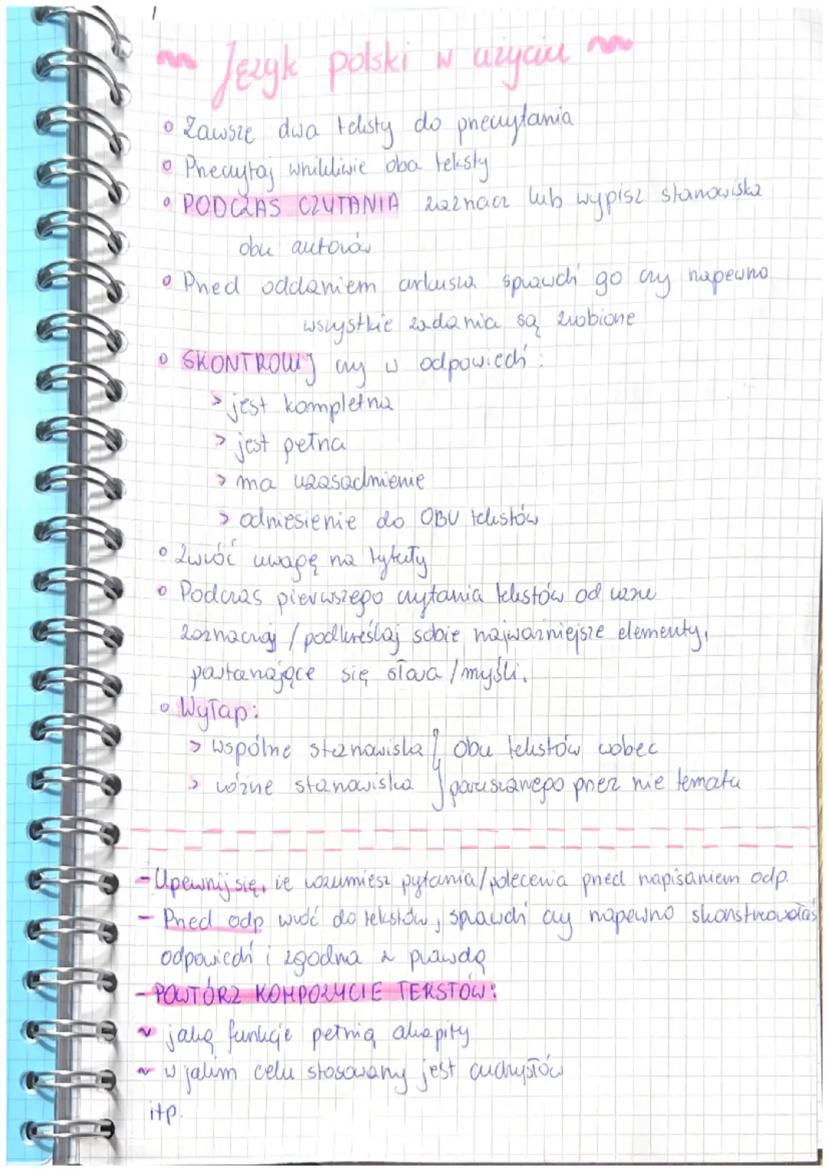 1
Język polski w użyciu
Zawsze dwa teksty do przeczytania
Przeczytaj wnikliwie oba teksty
PODCZAS CZYTANIA zaznacz lub wypisz stanowiska
obu autorów
Przed oddaniem arkusza sprawdź go czy napewno
wszystkie zadania są zrobione
SKONTROLUJ czy w odpowiedź:
> jest kompletna
> jest pełna
> ma uzasadnienie
> odniesienie do OBU tekstów
Zwróć uwagę na tytuły
Podczas pierwszego czytania tekstów od razu
zaznaczaj / podkreślaj sobie najważniejsze elementy,
powtarzające się słowa / myśli.
Wyłap:
> wspólne stanowiska } obu tekstów wobec
> różne stanowiska } poruszanego przez nie tematu
- Upewnij się, że rozumiesz pytania/polecenia przed napisaniem odp.
- Przed odp wróć do tekstów, sprawdź czy napewno skonstruowałaś
odpowiedź i zgodna z prawdą
- POWTÓRZ KOMPOZYCIE TEKSTÓW:
~ jaką funkcje pełnią akapity
~ w jakim celu stosowany jest cudzysłów
itp.